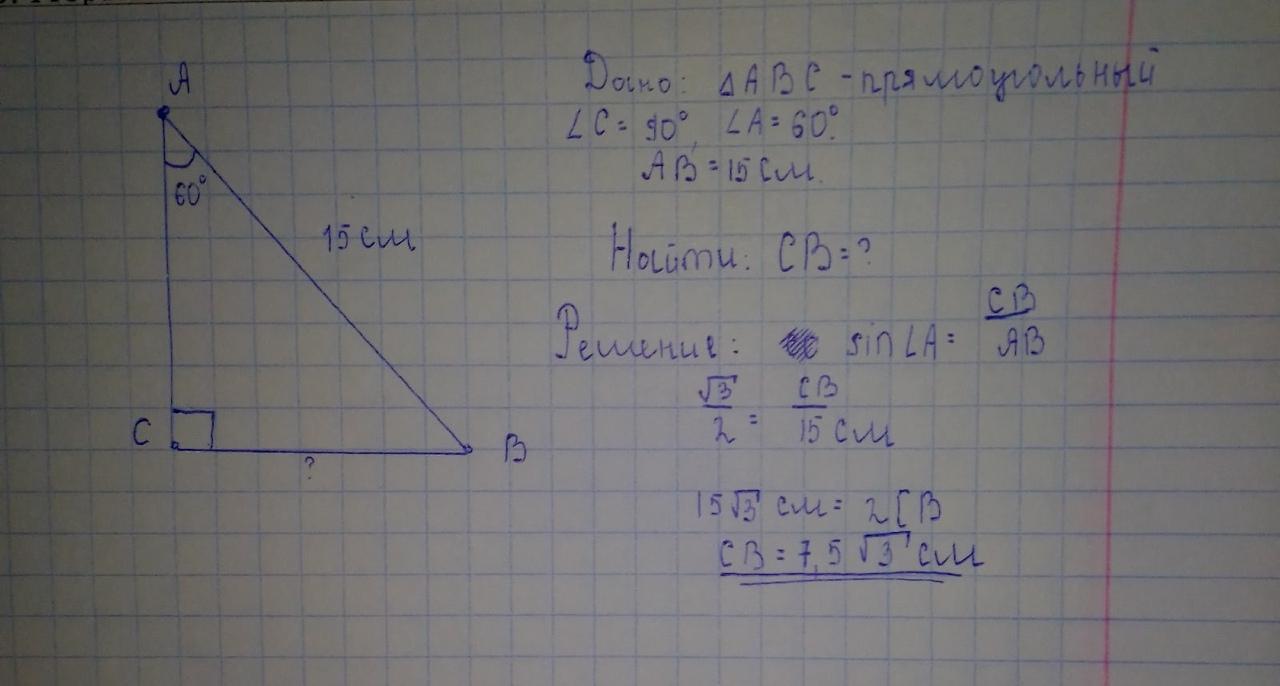 A
60°
15 см
C
B
?
Дано: △ABC - прямоугольный
∠C = 90°, ∠A = 60°.
AB = 15 см.
Найти: CB = ?
Решение: sin∠A = CB/AB
√3/2 = CB/15 см
15√3 см = 2CB
CB = 7,5√3 см